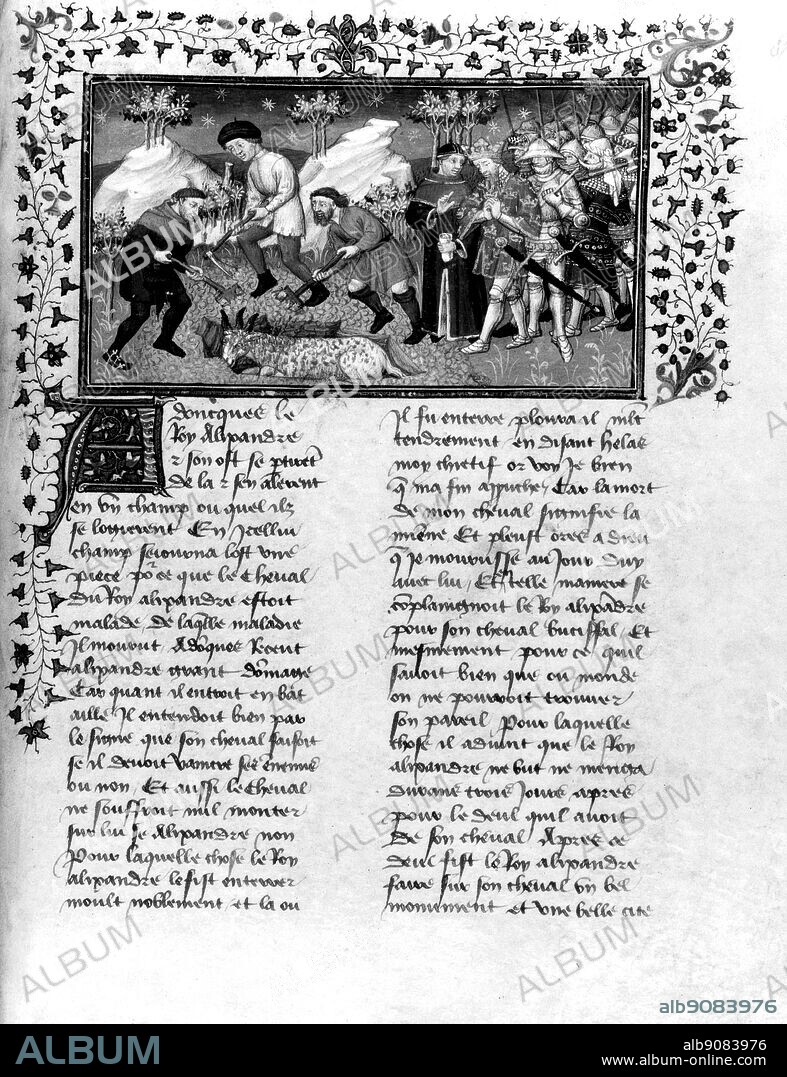 Adoncques le
Roy Alixandre
et son ost se ptiret
de la et sen alerent
en vn champ ou quel ilz
se logierent En Icellui
champ seiourna lost vne
piece po ce que le Cheval
du Roy alixandre estoit
malade de laqlle maladie
Il mourut Adoques Recent
alixandre grant domage
Car quant il entroit en bat
aille Il entendoit bien par
le signe que son cheval faisoit
se il devoit vaincre ses enemis
ou non Et aussi le Cheval
ne souffroit nul monter
sur lui se Alixandre non
Pour laquelle chose le Roy
alixandre le fist enterrer
moult noblement et la ou
Il fu enterre ploura il mlt
tendrement en disant helas
moy chietif or voy Je bien
q ma fin apruche Car la mort
de mon cheval signifie la
miene Et pleust ores a dieu
q Je mourusse au Jour duy
avec lui Et telle maniere se
coplaingnoit le Roy alixadre
pour son cheval bucifal Et
mesmement pour ce quil
savoit bien que ou monde
on ne pourroit trouver
son pareil Pour laquelle
chose il aduint que le Roy
alixandre ne but ne menga
durans trois Jours apres
pour le deul quil avoit
de son cheval Apres ce
deul fist le Roy alixandre
faire sur son cheval vn bel
monument et vne belle cite
ALBUM
alb9083976
ALBUM
alb9083976
www.album-online.com